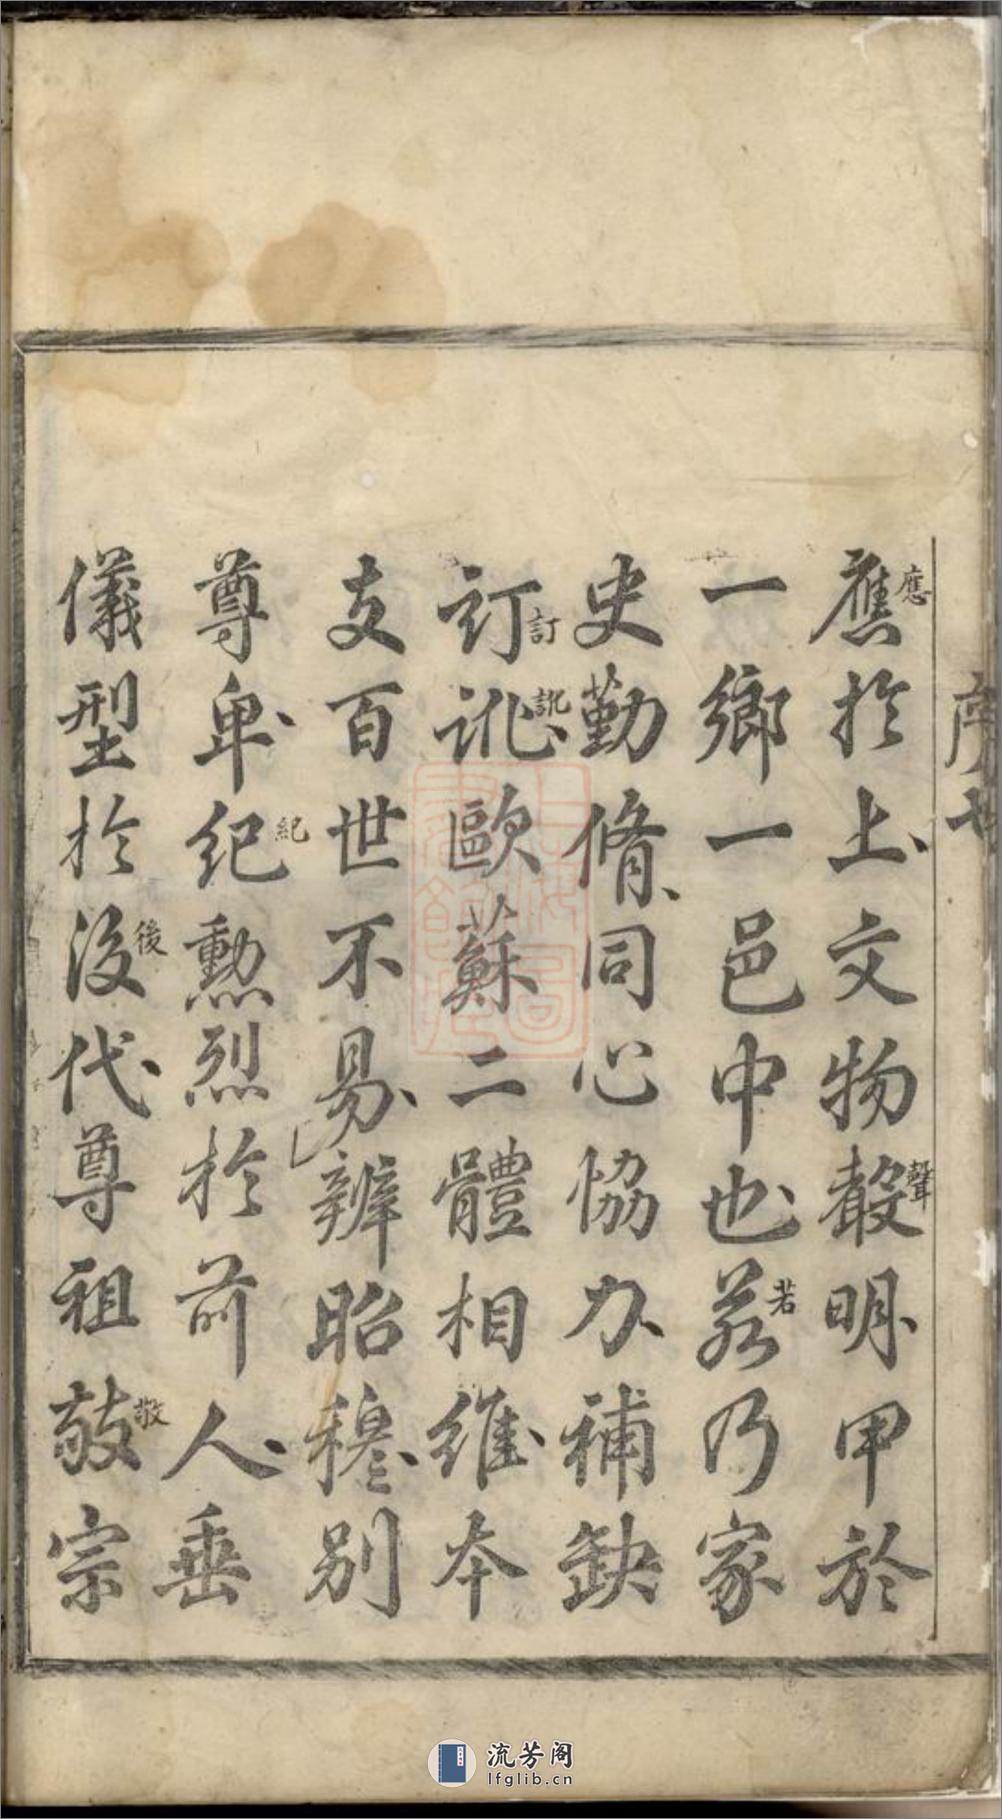 應於土文物聲明甲於
應
聲
一鄉一邑中也若乃家
若
史勤脩同心協力補缺
訂訛歐蘇二體相維本
訂
訛
支百世不易辨昭穆別
尊卑紀勳烈於前人垂
紀
儀型於後代尊祖敬宗
後
敬
序
七
流芳阁
lfglib.cn